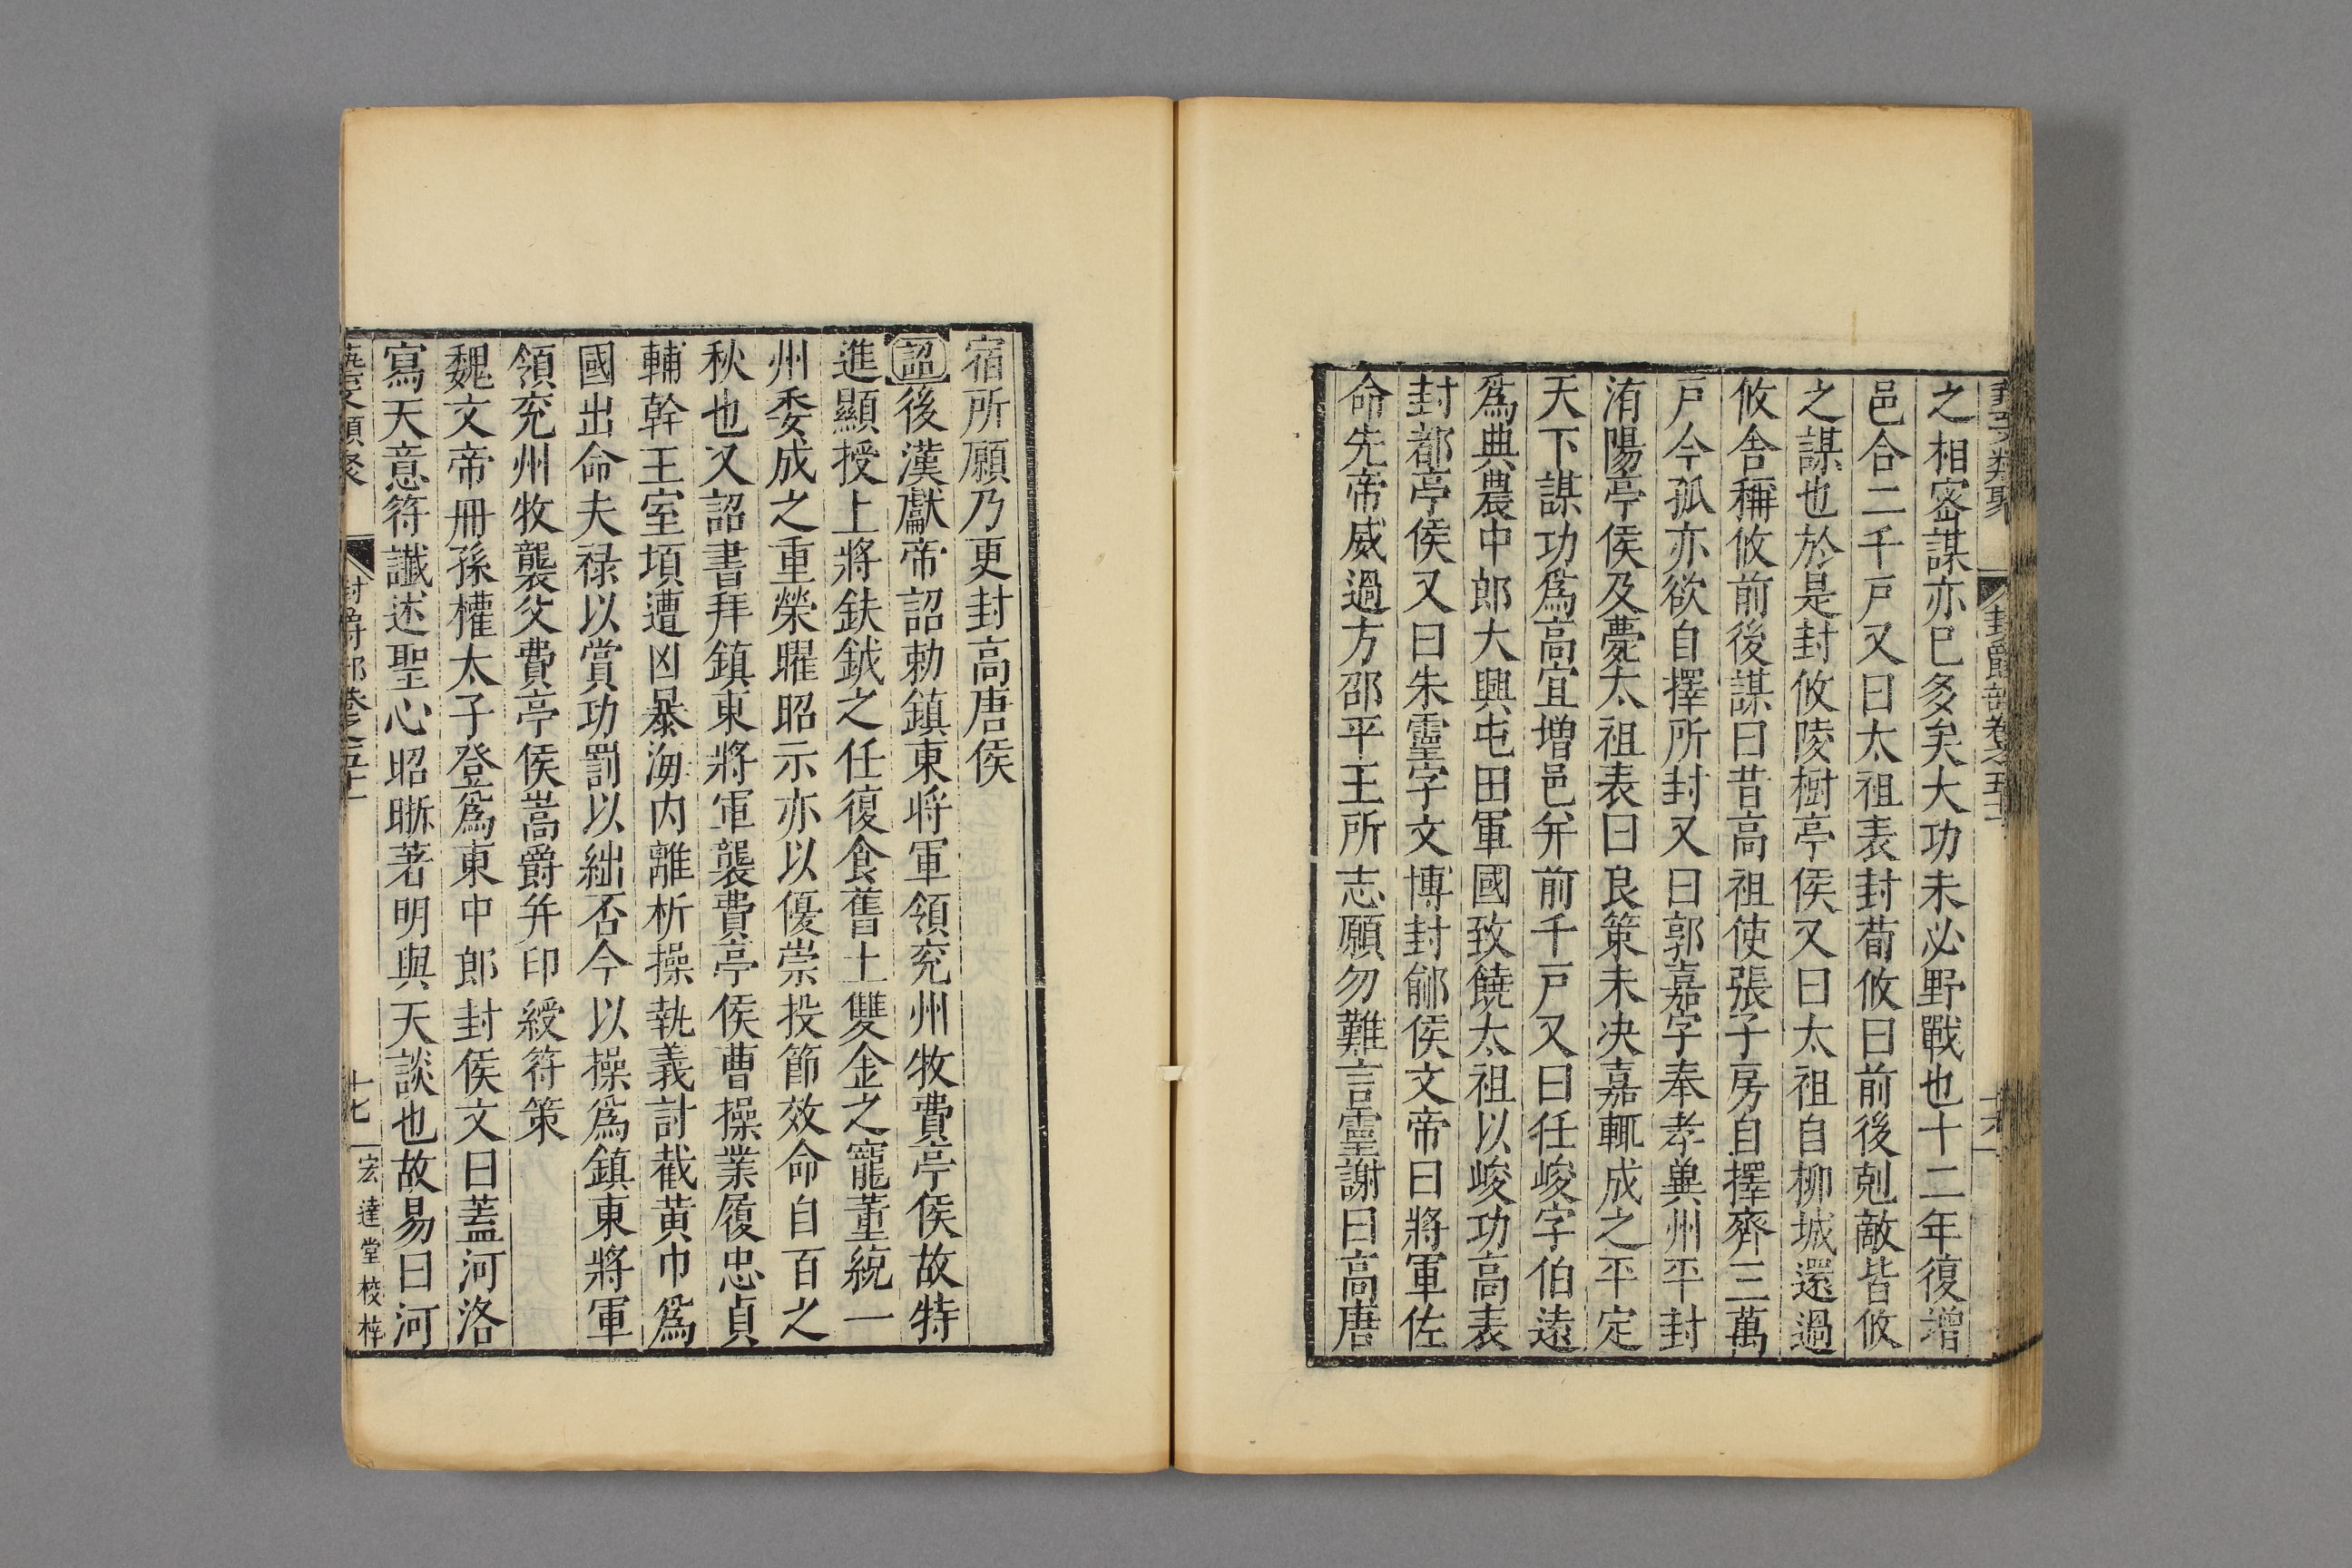 藝文類聚 封爵部卷之五十一 十六
之相密謀亦已多矣大功未必野戰也十二年復增
邑合二千戸又曰太祖表封荀攸曰前後剋敵皆攸
之謀也於是封攸陵樹亭侯又曰太祖自柳城還過
攸舍稱攸前後謀曰昔高祖使張子房自擇齊三萬
戸今孤亦欲自擇所封又曰郭嘉字奉孝冀州平封
洧陽亭侯及薨太祖表曰良策未决嘉輒成之平定
天下謀功爲高宜增邑并前千戸又曰任峻字伯遠
爲典農中郎大興屯田軍國致饒太祖以峻功高表
封都亭侯又曰朱靈字文博封鄃侯文帝曰將軍佐
命先帝威過方邵平王所志願勿難言靈謝曰高唐
宿所願乃更封高唐侯
詔後漢獻帝詔勅鎮東將軍領兖州牧費亭侯故特
進顯授上將鈇鉞之任復食舊土雙金之寵董統一
州委成之重榮曜昭示亦以優崇投節效命自百之
秋也又詔書拜鎮東將軍襲費亭侯曹操業履忠貞
輔幹王室頃遭凶暴海内離析操執義討截黄巾爲
國出命夫禄以賞功罰以絀否今以操爲鎮東將軍
領兖州牧襲父費亭侯嵩爵并印綬符策
魏文帝冊孫權太子登爲東中郎封侯文曰蓋河洛
寫天意符讖述聖心昭晣著明與天談也故易曰河
藝文類聚 封爵部卷之五十一 十七 宏達堂校梓